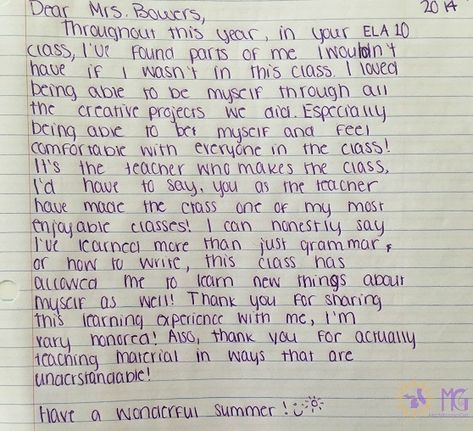 Dear Mrs. Bowers, 2014
Throughout this year, in your ELA 10
class, I've found parts of me I wouldn't
have if I wasn't in this class. I loved
being able to be myself through all
the creative projects we did. Especially
being able to be myself and feel
comfortable with everyone in the class!
It's the teacher who makes the class,
I'd have to say, you as the teacher
have made the class one of my most
enjoyable classes! I can honestly say
I've learned more than just grammar,
or how to write, this class has
allowed me to learn new things about
myself as well! Thank you for sharing
this learning experience with me, I'm
vary honored! Also, thank you for actually
teaching material in ways that are
understandable!
Have a wonderful summer!
MG